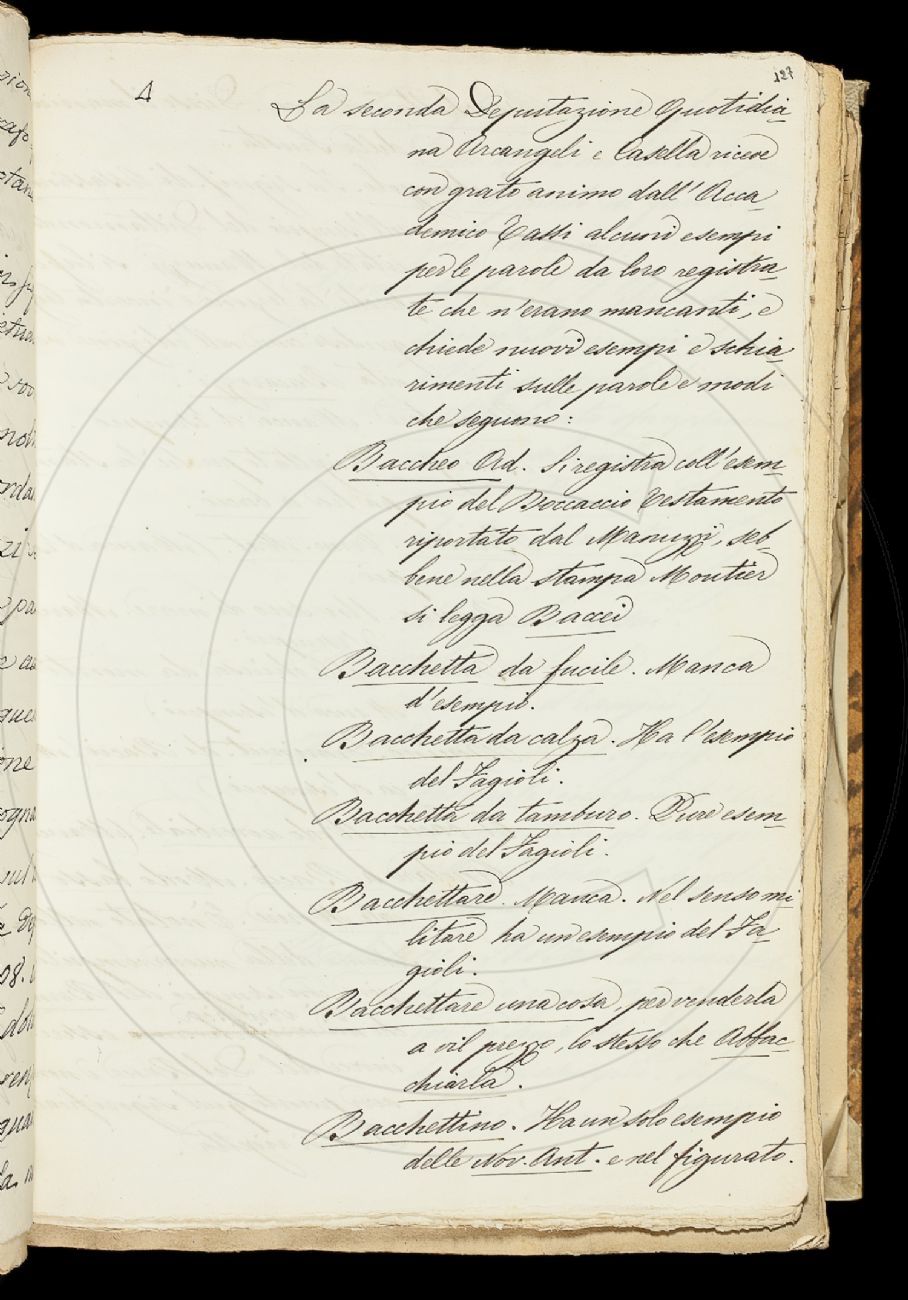 127
4
La seconda Deputazione Quotidia-
na Arcangeli e Casella riceve
con grato animo dall'Acca-
demico Tassi alcuni esempi
per le parole da loro registra-
te che n'erano mancanti, e
chiede nuovi esempi e schia-
rimenti sulle parole e modi
che seguono:
Baccheo Ad. Si registra coll'esem-
pio del Boccaccio Testamento
riportato dal Manuzzi, seb-
bene nella stampa Moutier
si legga Bacceo
Bacchetta da fucile. Manca
d'esempio.
Bacchetta da calza. Ha l'esempio
del Fagioli.
Bacchetta da tamburo. Pure esem-
pio del Fagioli.
Bacchettare. Manca. Nel senso mi-
litare ha un esempio del Fa-
gioli.
Bacchettare una cosa, per venderla
a vil prezzo, lo stesso che Abbac-
chiarla.
Bacchettino. Ha un solo esempio
delle Nov. Ant. e nel figurato.